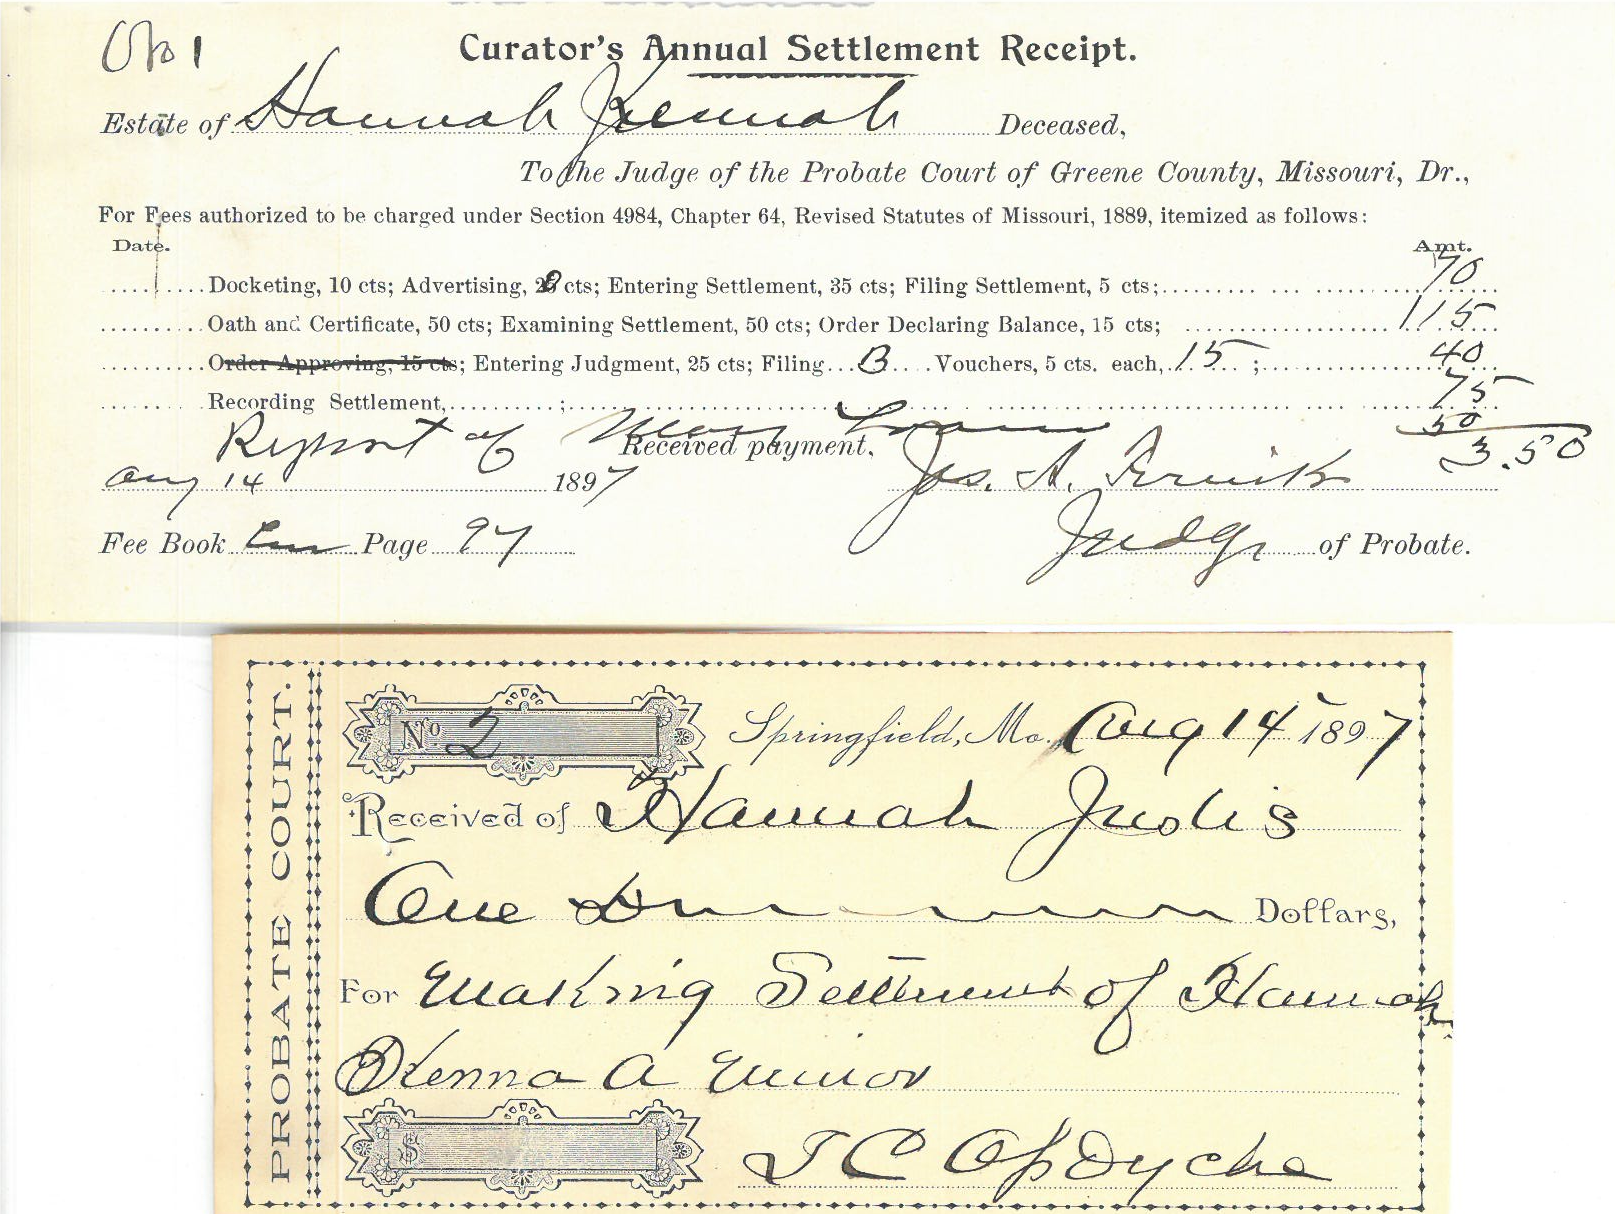 No 1
Curator's Annual Settlement Receipt.
Estate of Hannah Deceased,
To the Judge of the Probate Court of Greene County, Missouri, Dr.,
For Fees authorized to be charged under Section 4984, Chapter 64, Revised Statutes of Missouri, 1889, itemized as follows:
Date. Amt.
Docketing, 10 cts; Advertising, 20 cts; Entering Settlement, 35 cts; Filing Settlement, 5 cts; 70
Oath and Certificate, 50 cts; Examining Settlement, 50 cts; Order Declaring Balance, 15 cts; 1 15
Order Approving, 15 cts; Entering Judgment, 25 cts; Filing 3 Vouchers, 5 cts. each, 15; 40
Recording Settlement, ; 75
Report of Loan 50
Received payment, 3.50
Aug 14 1897 Jos. A.
Fee Book Page 97 Judge of Probate.
PROBATE COURT.
No 2 Springfield, Mo. Aug 14 1897
Received of Hannah
One Dollars,
For Making Settlement of Hannah
Kenna A Minor
$ J C OpDycke